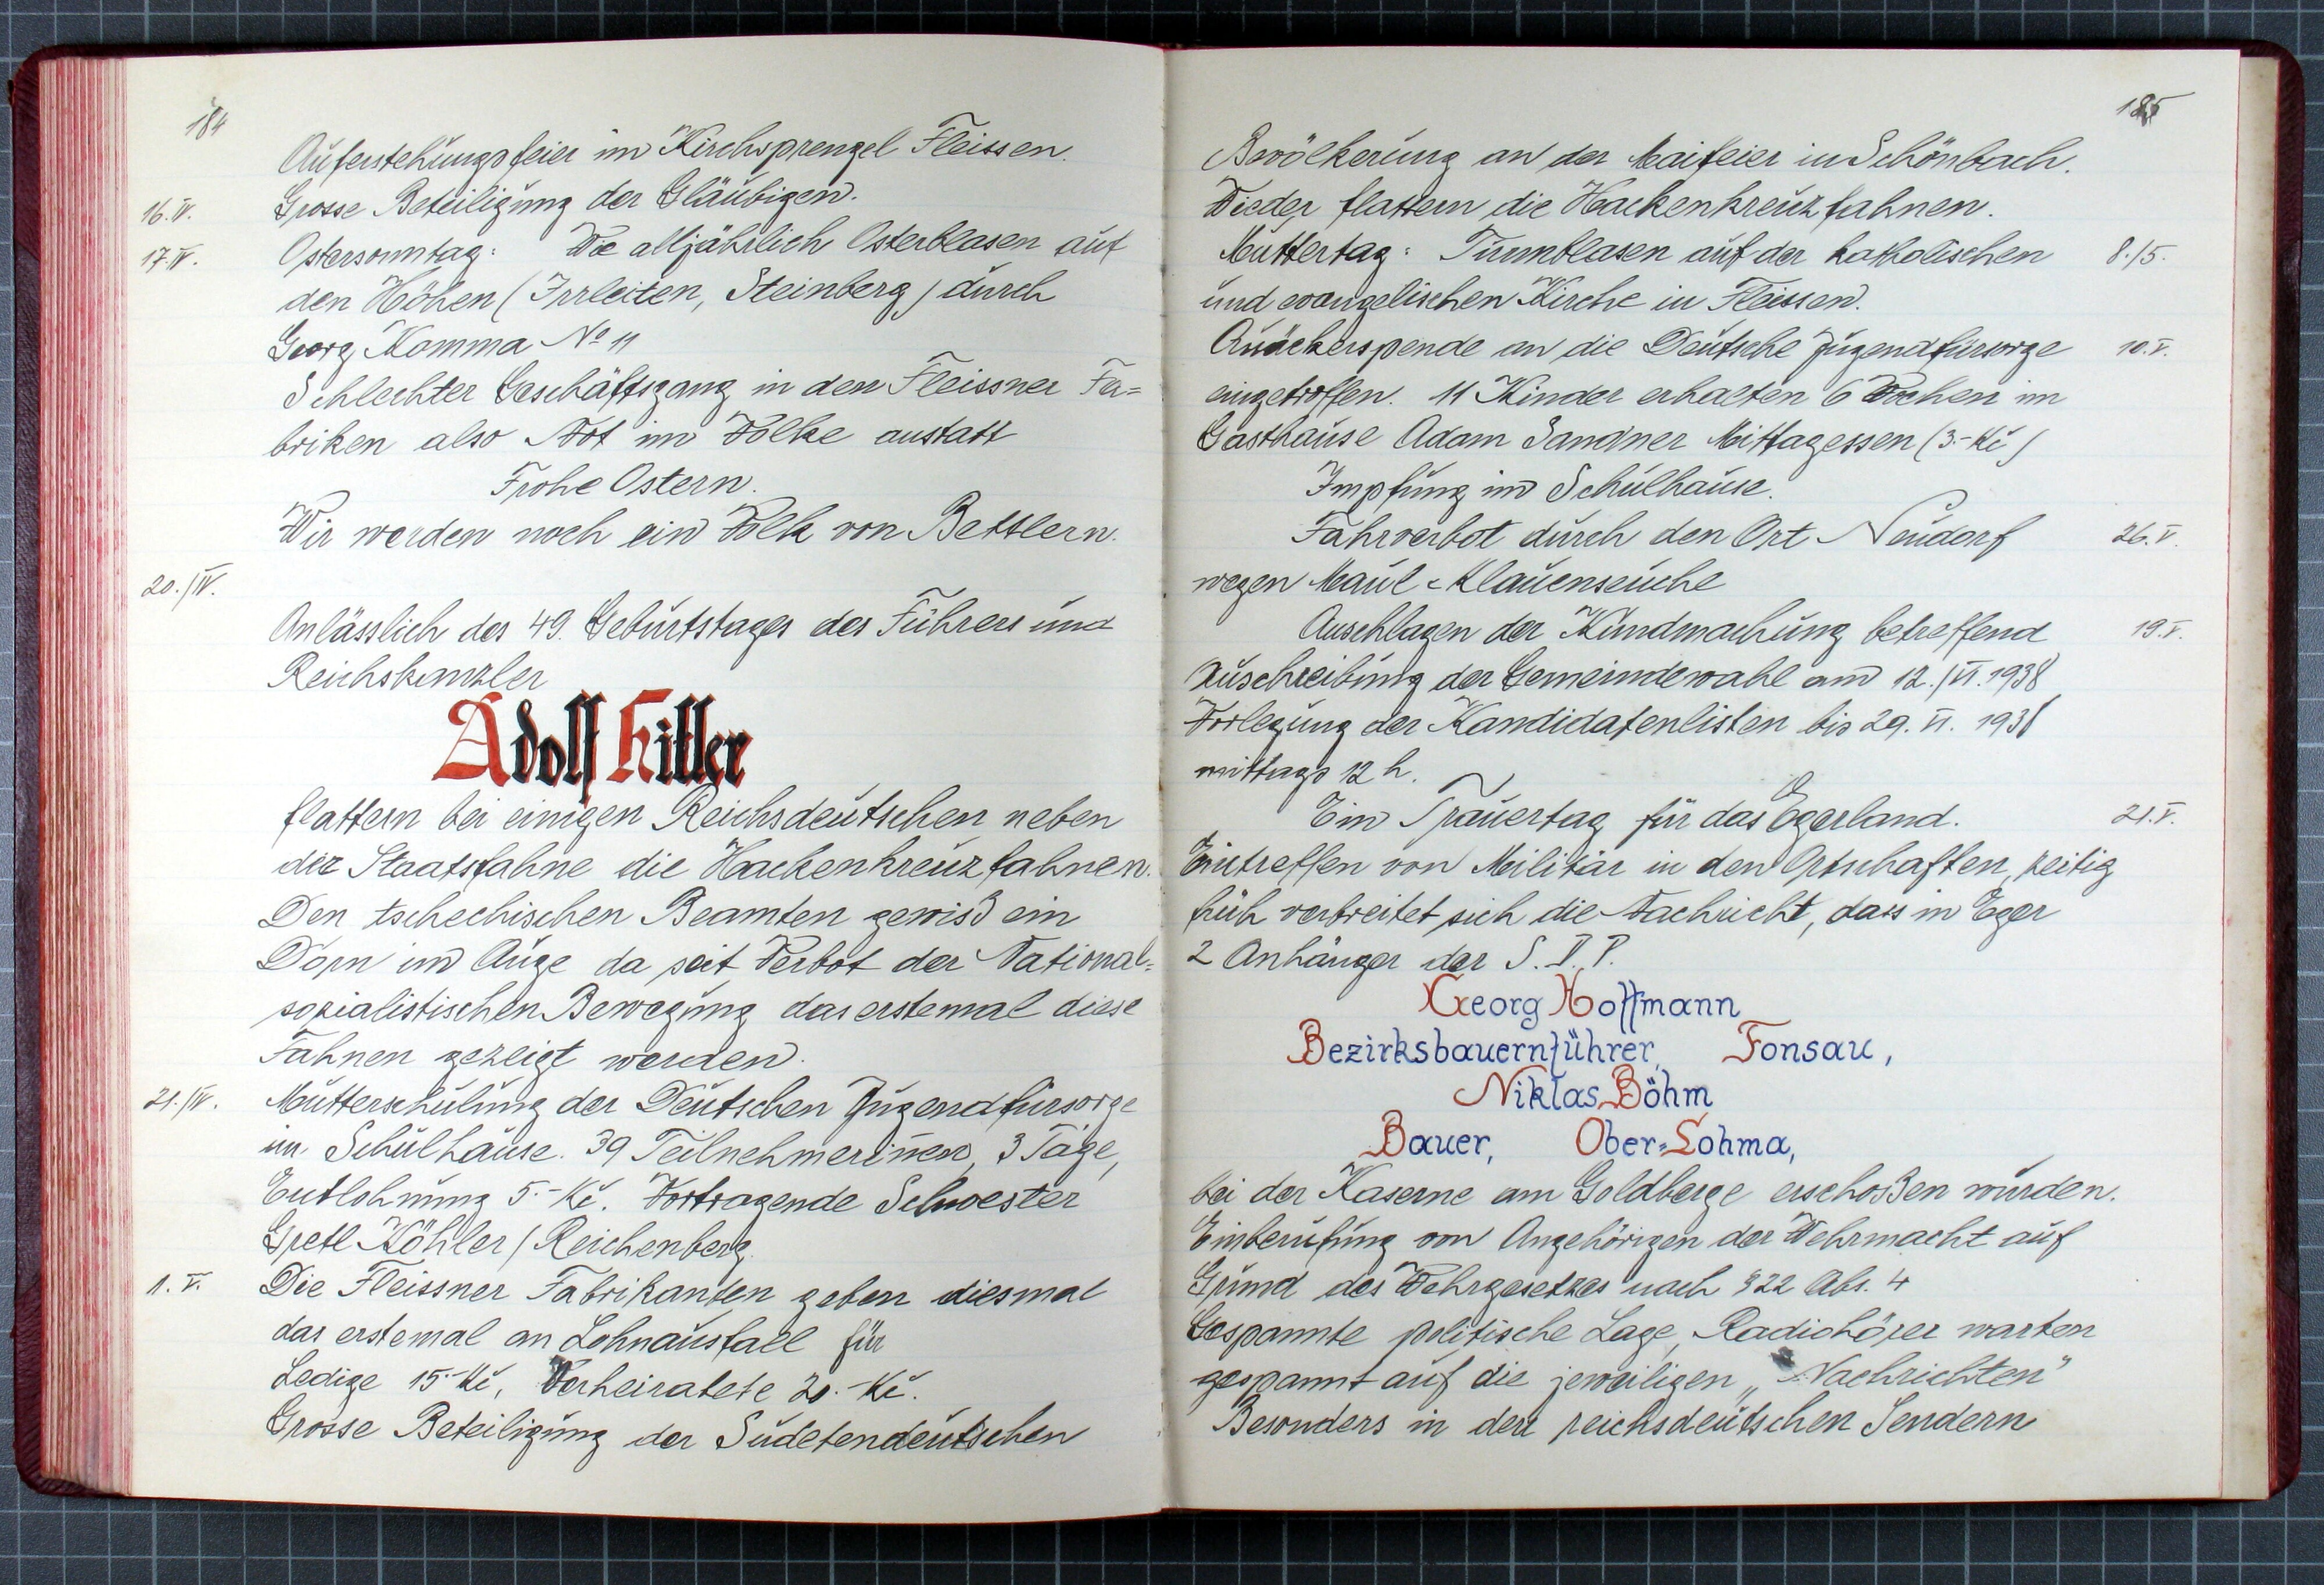 184
Auferstehungsfeier im Kirchsprengel Fleissen.
16.IV. Grosse Beteiligung der Gläubigen.
17.IV. Ostersonntag: Wie alljährlich Osterblasen auf
den Höhen (Irrleiten, Steinberg) durch
Georg Komma No 11
Schlechter Geschäftsgang in den Fleissner Fa=
briken also Not im Volke anstatt
Frohe Ostern.
Wir werden noch ein Volk von Bettlern.
20./IV.
Anlässlich des 49. Geburtstages des Führers und
Reichskanzler
Adolf Hitler
flattern bei einigen Reichsdeutschen neben
der Staatsfahne die Hackenkreuzfahnen.
Den tschechischen Beamten gewiß ein
Dorn im Auge da seit Verbot der National=
sozialistischen Bewegung das erstemal diese
Fahnen gezeigt werden.
21./IV. Mutterschulung der Deutschen Jugendfürsorge
im Schulhause. 39 Teilnehmerinen, 3 Tage,
Entlohnung 5.-Kč. Vortragende Schwester
Gretl Köhler / Reichenberg.
1.V. Die Fleissner Fabrikanten geben diesmal
das erstemal an Lohnausfall für
Ledige 15.-Kč, Verheiratete 20.-Kč.
Grosse Beteiligung der Sudetendeutschen
185
Bevölkerung an der Maifeier in Schönbach.
Wieder flattern die Hackenkreuzfahnen.
Muttertag: Turmblasen auf der katholischen 8./5.
und evangelischen Kirche in Fleissen.
Quäckerspende an die Deutsche Jugendfürsorge 10.V.
eingetroffen. 11 Kinder erhalten 6 Wochen im
Gasthause Adam Sandner Mittagessen (3.-Kč)
Impfung im Schulhause.
Fahrverbot durch den Ort Neudorf 26.V.
wegen Maul=Klauenseuche
Anschlagen der Kundmachung betreffend 19.V.
Auschreibung der Gemeindewahl am 12./VI.1938
Vorlegung der Kandidatenlisten bis 29.VI. 1938
mittags 12 h.
Ein Trauertag für das Egerland. 21.V.
Eintreffen von Militär in den Ortschaften, zeitig
früh verbreitet sich die Nachricht, dass in Eger
2 Anhänger der S.D.P.
Georg Hoffmann
Bezirksbauernführer, Fonsau,
Niklas Böhm
Bauer, Ober=Lohma,
bei der Kaserne am Goldberge erschoßen wurden.
Einberufung von Angehörigen der Wehrmacht auf
Grund des Wehrgesetzes nach § 22 Abs. 4
Gespannte politische Lage, Radiohörer warten
gespannt auf die jeweiligen „Nachrichten"
Besonders in den reichsdeutschen Sendern